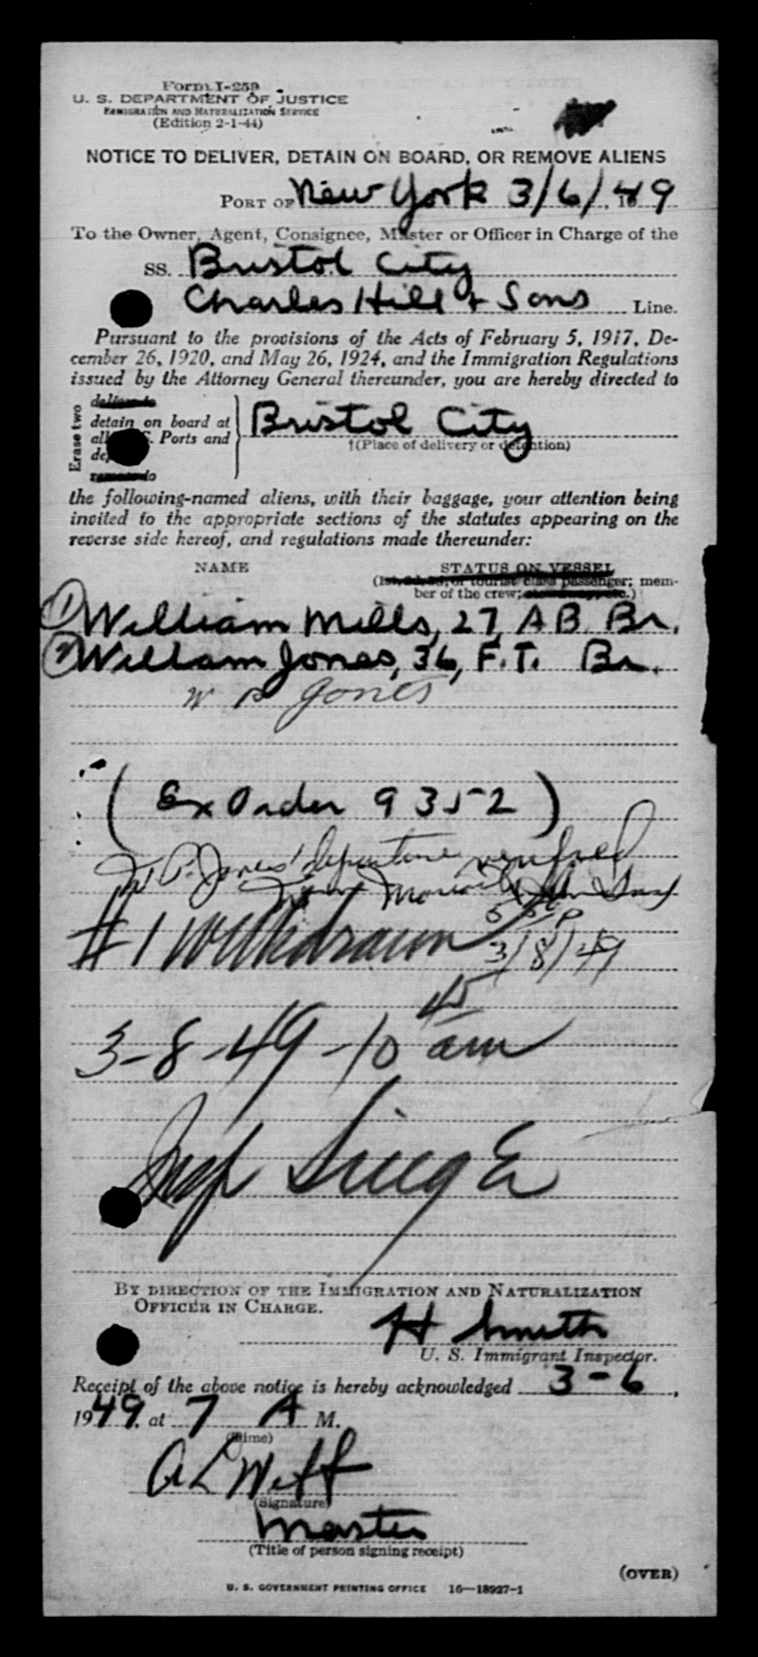 Form I-259
U. S. DEPARTMENT OF JUSTICE
IMMIGRATION AND NATURALIZATION SERVICE
(Edition 2-1-44)
NOTICE TO DELIVER, DETAIN ON BOARD, OR REMOVE ALIENS
PORT OF New York 3/6/, 1949
To the Owner, Agent, Consignee, Master or Officer in Charge of the
SS. Bristol City
Charles Hill & Sons Line.
Pursuant to the provisions of the Acts of February 5, 1917, De-
cember 26, 1920, and May 26, 1924, and the Immigration Regulations
issued by the Attorney General thereunder, you are hereby directed to
Erase two
deliver to
detain on board at
all U.S. Ports and
remove to
Bristol City
†(Place of delivery or detention)
the following-named aliens, with their baggage, your attention being
invited to the appropriate sections of the statutes appearing on the
reverse side hereof, and regulations made thereunder:
NAME STATUS ON VESSEL
(1st, 2d, 3d, or tourist class passenger; mem-
ber of the crew; etc.)
① William Mills, 27, AB. Br.
② William Jones, 36, F.T. Br.
W P Jones
(Ex Order 9352)
W. P. Jones' departure verified
#1 Withdrawn 3/8/49
3-8-49-10 45 am
Insp
BY DIRECTION OF THE IMMIGRATION AND NATURALIZATION
OFFICER IN CHARGE.
H Smith
U. S. Immigrant Inspector.
Receipt of the above notice is hereby acknowledged 3-6,
1949, at 7 A M.
(Time)
(Signature)
Master
(Title of person signing receipt)
(OVER)
U. S. GOVERNMENT PRINTING OFFICE 16—18927-1